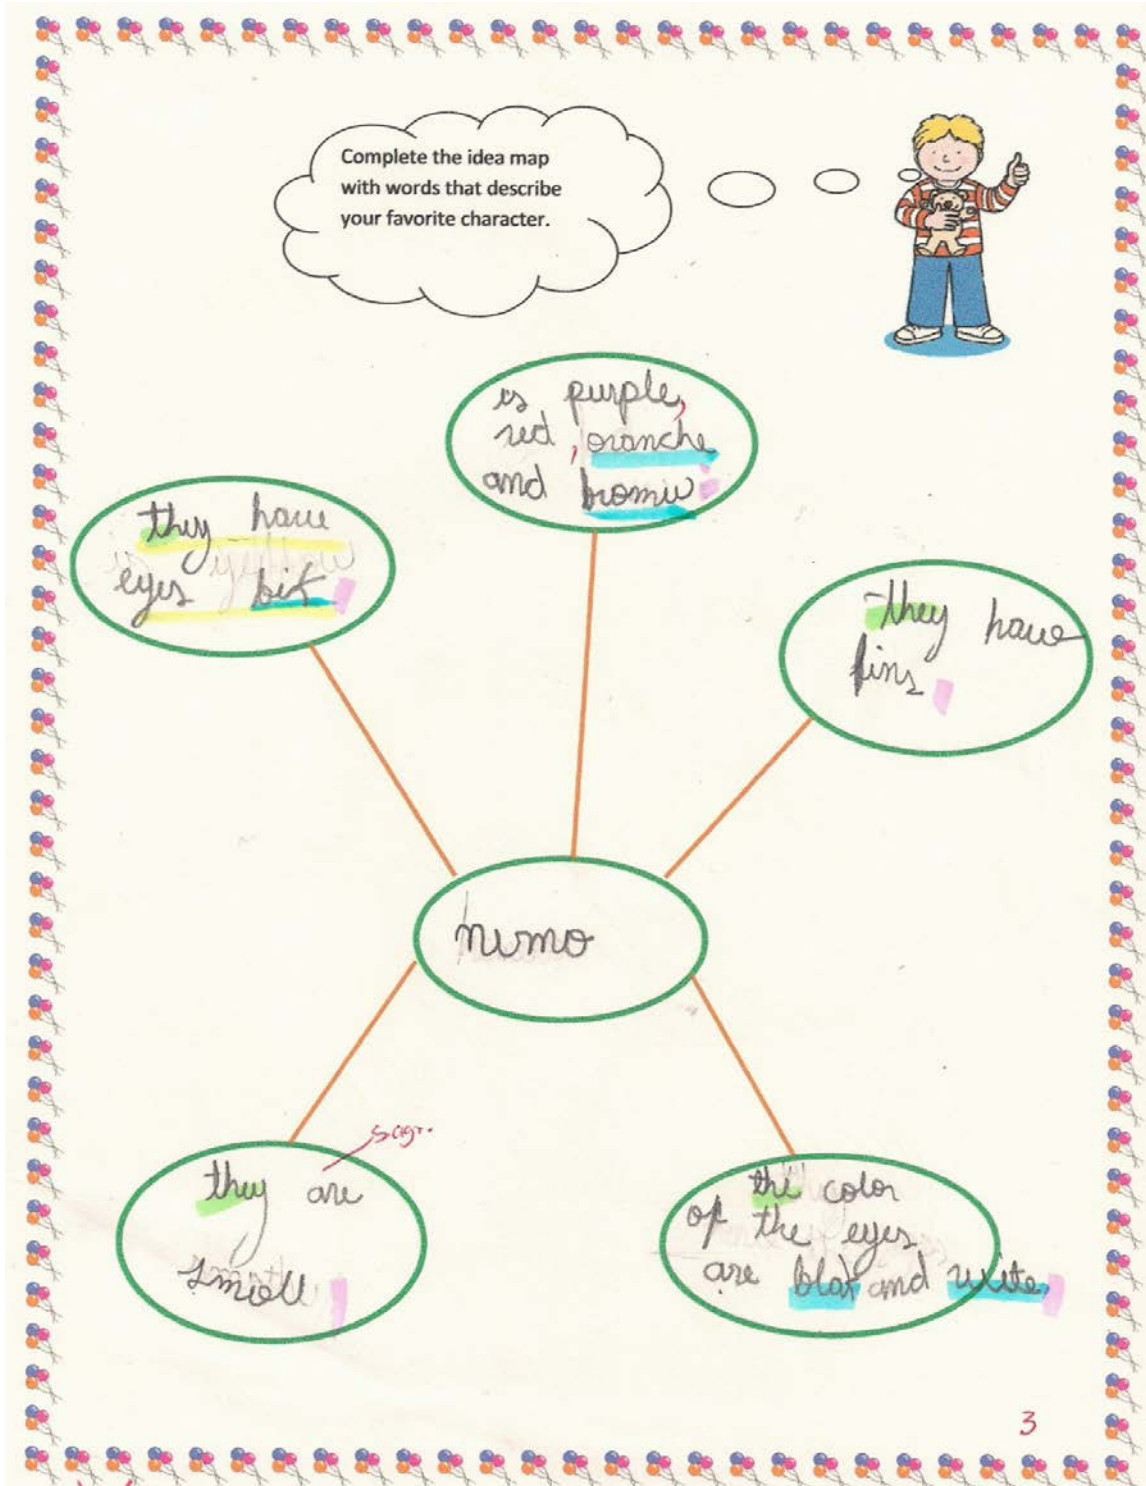 Complete the idea map
with words that describe
your favorite character.
is purple,
red, oranche
and bromw
they have
eyes bik
they have
fins
nimo
they are
small
the color
of the eyes
are blak and wite
3